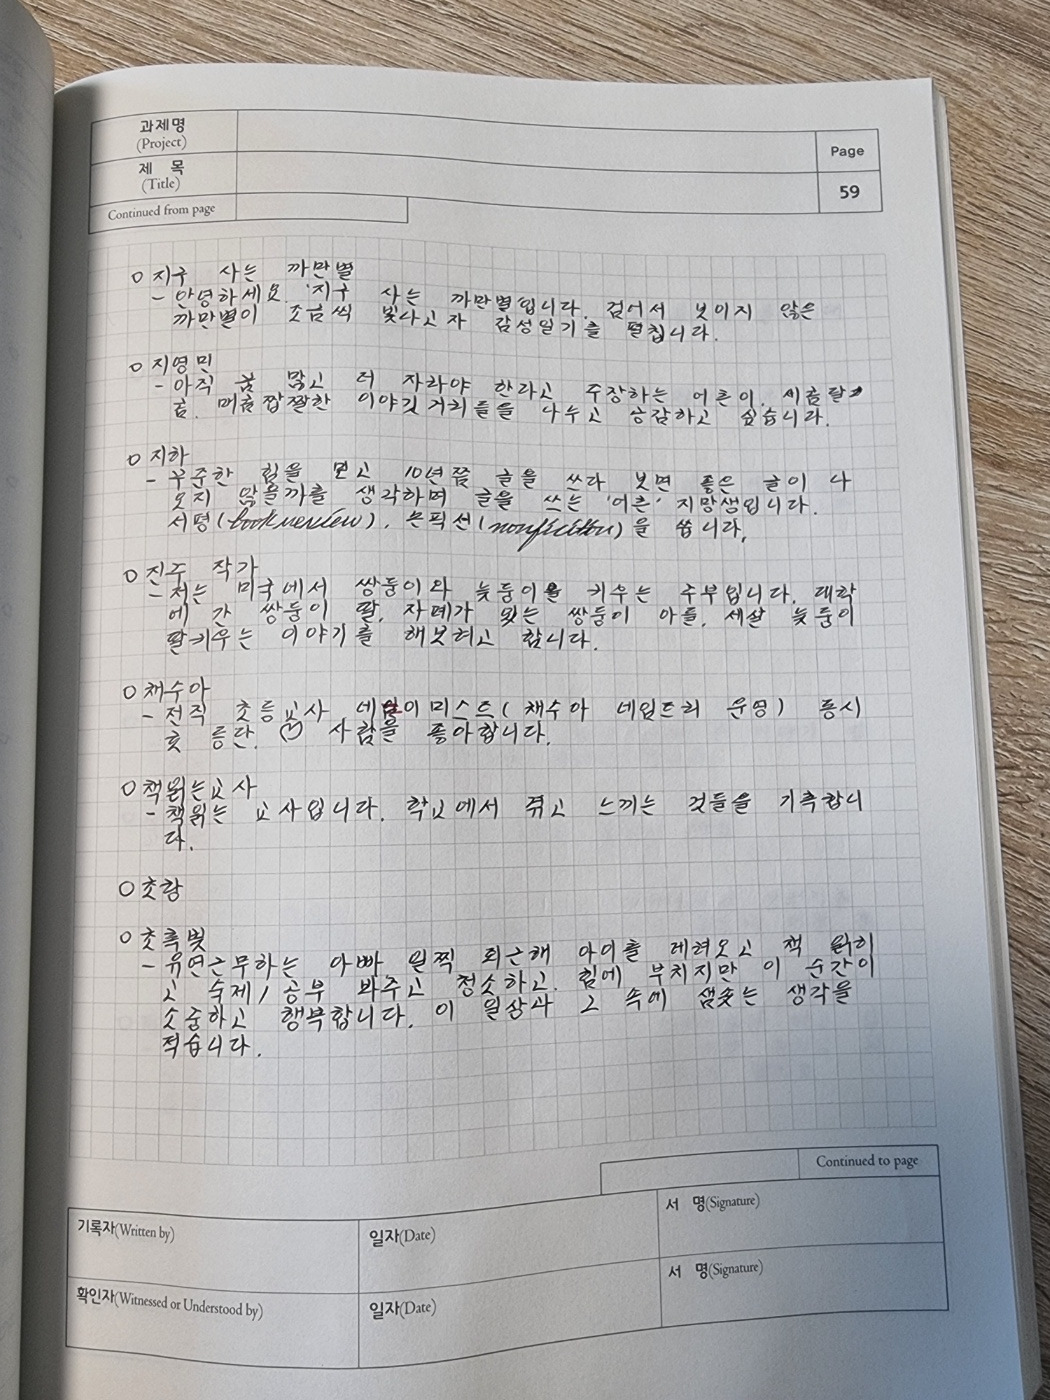 과제명
(Project)
제 목
(Title)
Page
59
Continued from page
○ 지구 사는 까만별
- 안녕하세요. '지구 사는 까만별'입니다. 검어서 보이지 않은
까만별이 조금씩 빛나고자 감성일기를 펼칩니다.
○ 지영민
- 아직 꿈 많고 더 자라야 한다고 주장하는 어른이. 세흠달
흠. 매콤짭짤한 이야깃거리들을 나누고 공감하고 싶습니다.
○ 지하
- 꾸준한 힘을 믿고 10년쯤 글을 쓰다 보면 좋은 글이 나
오지 않을까를 생각하며 글을 쓰는 '어른' 지망생입니다.
서평(bookreview), 논픽션(nonfiction)을 씁니다.
○ 진주 작가
- 저는 미국에서 쌍둥이와 늦둥이를 키우는 주부입니다. 대학
에 간 쌍둥이 딸, 자폐가 있는 쌍둥이 아들, 세살 늦둥이
딸키우는 이야기를 해보려고 합니다.
○ 채수아
- 전직 초등교사 네임이미스트(채수아 네임트리 운영) 동시
로 등단. ♡ 사람을 좋아합니다.
○ 책읽는교사
- 책읽는 교사입니다. 학교에서 겪고 느끼는 것들을 기록합니
다.
○ 초랑
○ 초록빛
- 유연근무하는 아빠. 일찍 퇴근해 아이를 데려오고 책 읽히
고 숙제/공부 봐주고 청소하고. 힘에 부치지만 이 순간이
소중하고 행복합니다. 이 일상과 그 속에 샘솟는 생각을
적습니다.
Continued to page
기록자(Written by)
일자(Date)
서 명(Signature)
확인자(Witnessed or Understood by)
일자(Date)
서 명(Signature)